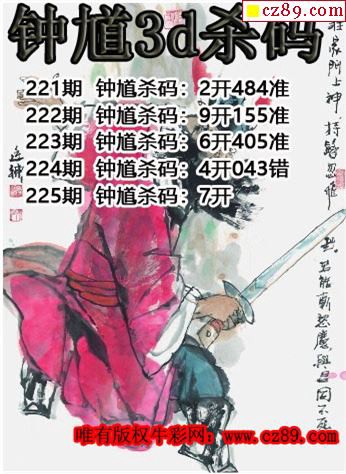 钟馗3d杀码
cz89.com
221期 钟馗杀码：2开484准
222期 钟馗杀码：9开155准
223期 钟馗杀码：6开405准
224期 钟馗杀码：4开043错
225期 钟馗杀码：7开
唯有版权牛彩网：www.cz89.com